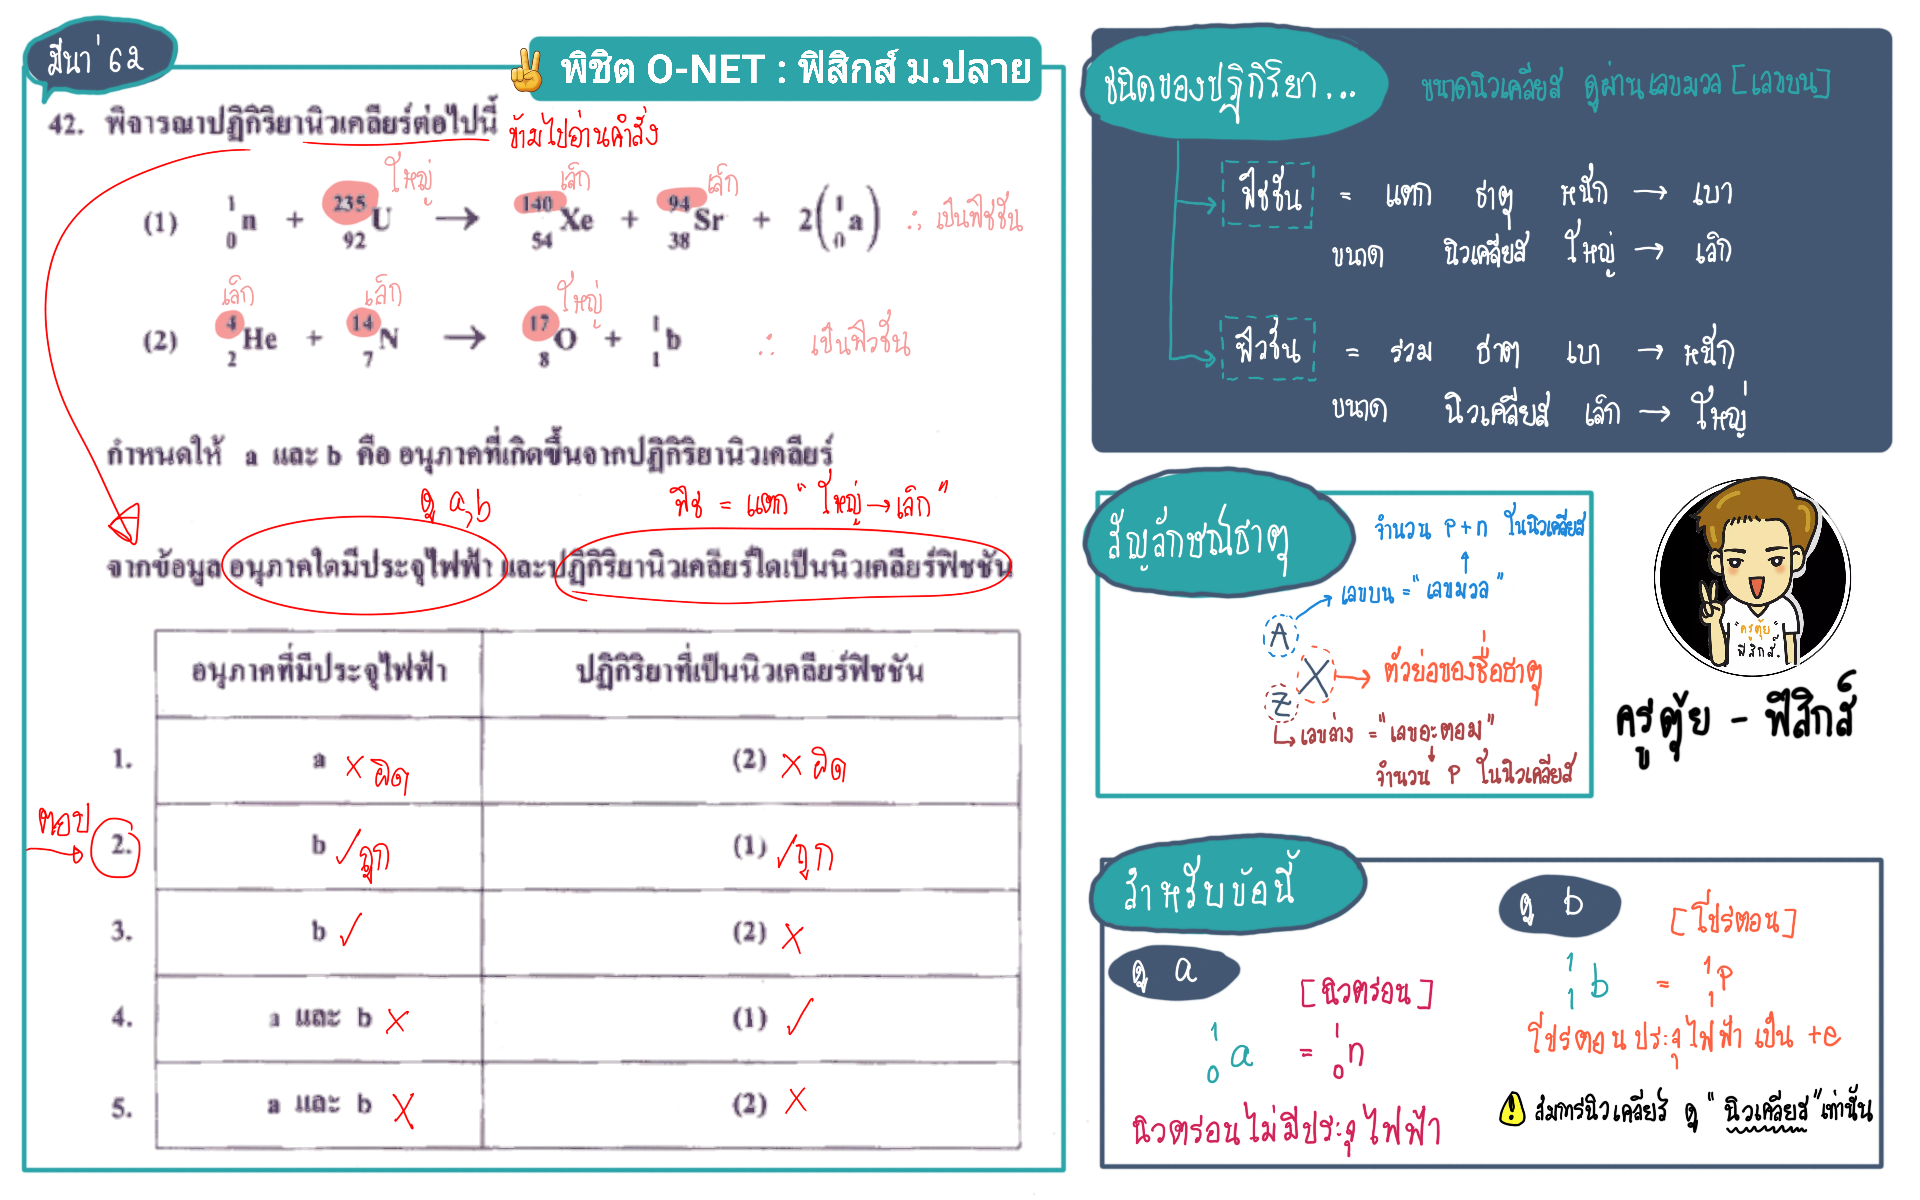 มีนา' 62
✌ พิชิต O-NET : ฟิสิกส์ ม.ปลาย
42. พิจารณาปฏิกิริยานิวเคลียร์ต่อไปนี้ ข้ามไปอ่านคำสั่ง
ใหญ่ เล็ก เล็ก
(1) ¹₀n + ²³⁵₉₂U → ¹⁴⁰₅₄Xe + ⁹⁴₃₈Sr + 2(¹₀a) ∴ เป็นฟิชชัน
เล็ก เล็ก ใหญ่
(2) ⁴₂He + ¹⁴₇N → ¹⁷₈O + ¹₁b ∴ เป็นฟิวชัน
กำหนดให้ a และ b คือ อนุภาคที่เกิดขึ้นจากปฏิกิริยานิวเคลียร์
ดู a,b ฟิช = แตก "ใหญ่ → เล็ก"
จากข้อมูล อนุภาคใดมีประจุไฟฟ้า และปฏิกิริยานิวเคลียร์ใดเป็นนิวเคลียร์ฟิชชัน
อนุภาคที่มีประจุไฟฟ้า ปฏิกิริยาที่เป็นนิวเคลียร์ฟิชชัน
1. a × ผิด (2) × ผิด
ตอบ → 2. b ✓ ถูก (1) ✓ ถูก
3. b ✓ (2) ×
4. a และ b × (1) ✓
5. a และ b × (2) ×
ชนิดของปฏิกิริยา... ขนาดนิวเคลียส ดูผ่านเลขมวล [เลขบน]
ฟิชชัน = แตก ธาตุ หนัก → เบา
ขนาด นิวเคลียส ใหญ่ → เล็ก
ฟิวชัน = รวม ธาตุ เบา → หนัก
ขนาด นิวเคลียส เล็ก → ใหญ่
สัญลักษณ์ธาตุ
จำนวน p+n ในนิวเคลียส
เลขบน = "เลขมวล"
A
X → ตัวย่อของชื่อธาตุ
Z
เลขล่าง = "เลขอะตอม"
จำนวน p ในนิวเคลียส
ครูตุ้ย
ฟิสิกส์.
ครูตุ้ย - ฟิสิกส์
สำหรับข้อนี้
ดู a
[นิวตรอน]
¹₀a = ¹₀n
นิวตรอนไม่มีประจุไฟฟ้า
ดู b
[โปรตอน]
¹₁b = ¹₁p
โปรตอน ประจุไฟฟ้า เป็น +e
⚠ สมการนิวเคลียร์ ดู "นิวเคลียส" เท่านั้น